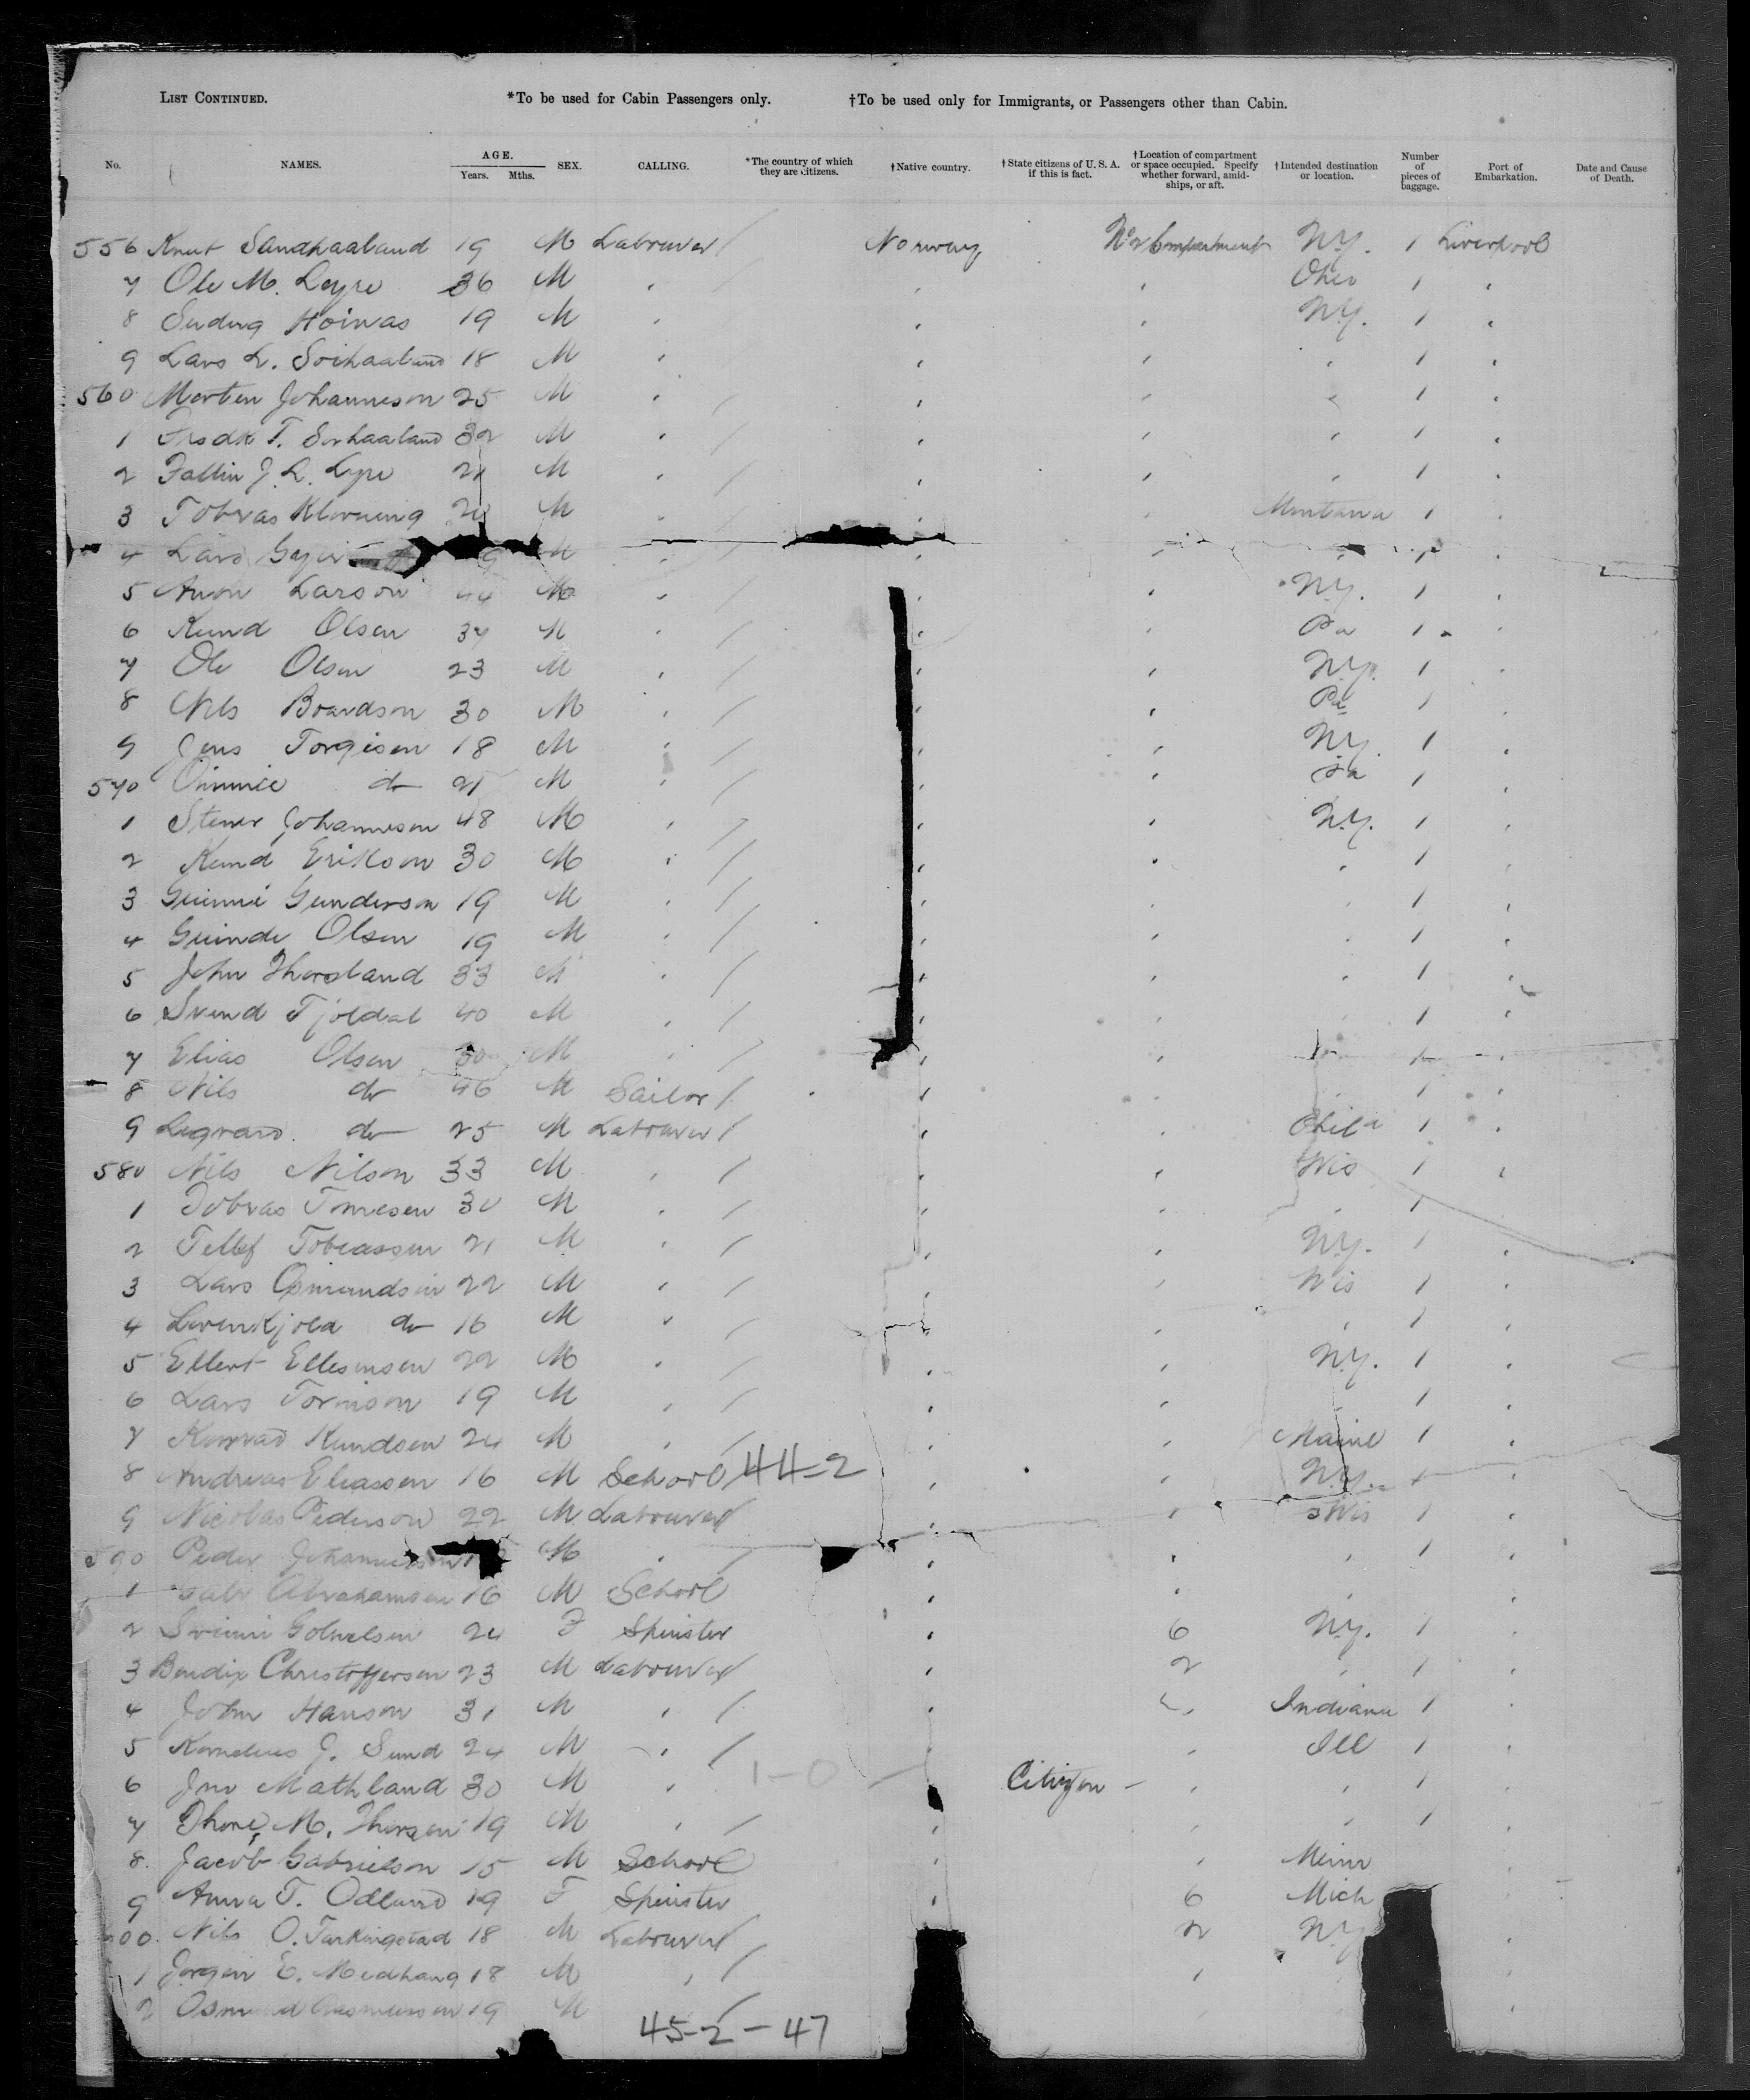 LIST CONTINUED. *To be used for Cabin Passengers only. †To be used only for Immigrants, or Passengers other than Cabin.
No. NAMES. AGE. Years. Mths. SEX. CALLING. *The country of which they are citizens. †Native country. †State citizens of U. S. A. if this is fact. †Location of compartment or space occupied. Specify whether forward, amidships, or aft. †Intended destination or location. Number of pieces of baggage. Port of Embarkation. Date and Cause of Death.
556 Knut Sandhaaland 19 M Labourer / Norway No 2 Compartment N.Y. 1 Liverpool
7 Ole M. 36 M " / " " Ohio 1 "
8 Hoinas 19 M " " " N.Y. 1 "
9 Lars L. 18 M " " " " 1 "
560 Morten Johanneson 25 M " / " " " 1 "
1 Fredk T. 32 M " / " " " 1 "
2 J. L. 21 M " / " " " 1 "
3 Tobias M " / " " Montana 1 "
4 Lars M " / " " " 1 "
5 Larson 44 M " / " N.Y. 1 "
6 Knud Olsen 37 M " / " " Pa 1 "
7 Ole Olsen 23 M " / " " N.Y. 1 "
8 Nils 30 M " / " " Pa 1 "
9 Jens Torgisen 18 M " / " " N.Y. 1 "
570 do 21 M " / " " 1 "
1 Johanneson 48 M " / " " N.Y. 1 "
2 Knud Erikson 30 M " / " " " 1 "
3 Gunderson 19 M " / " " " 1 "
4 Olsen 19 M " / " " " 1 "
5 John Thorsland 33 M " / " " " 1 "
6 Svend Tjoldal 40 M " / " " " 1 "
7 Elias Olsen 30 M " / " " " 1 "
8 Nils do 46 M Sailor / " " " 1 "
9 do 25 M Labourer / " " Phila 1 "
580 Nils Nilson 33 M " / " " Wis 1 "
1 Tobias 30 M " / " " " 1 "
2 Tellef Tobiassen 21 M " / " " N.Y. 1 "
3 Lars Osmundsen 22 M " / " " Wis 1 "
4 do 16 M " / " " " 1 "
5 Ellert Ellesensen 22 M " / " " N.Y. 1 "
6 Lars 19 M " / " " 1 "
7 Konrad Knudsen 24 M " / " " Maine 1 "
8 Andreas Eliassen 16 M School 44-2 " " N.Y. 1 "
9 Nicolas Pederson 22 M Labourer / " " Wis 1 "
590 Peder M " / " " " 1 "
1 Abrahamsen 16 M School " " " "
2 24 F Spinster " 6 N.Y. 1 "
3 Bendix Christoffersen 23 M Labourer / " 2 " 1 "
4 John Hanson 31 M " / " " Indiana 1 "
5 Kornelius J. Sund 24 M " / " " Ill 1 "
6 Jno Mathland 30 M " 1-0 " Citizen " " 1 "
7 Thore M. Thorsen 19 M " / " " " 1 "
8 Jacob Gabrielson 15 M School " " Minn "
9 Anna T. Odland 19 F Spinster " 6 Mich "
600 Nils O. 18 M Labourer / 2 N.Y. "
1 Jorgen E. Medhaug 18 M " / " "
2 19 M / "
45-2-47